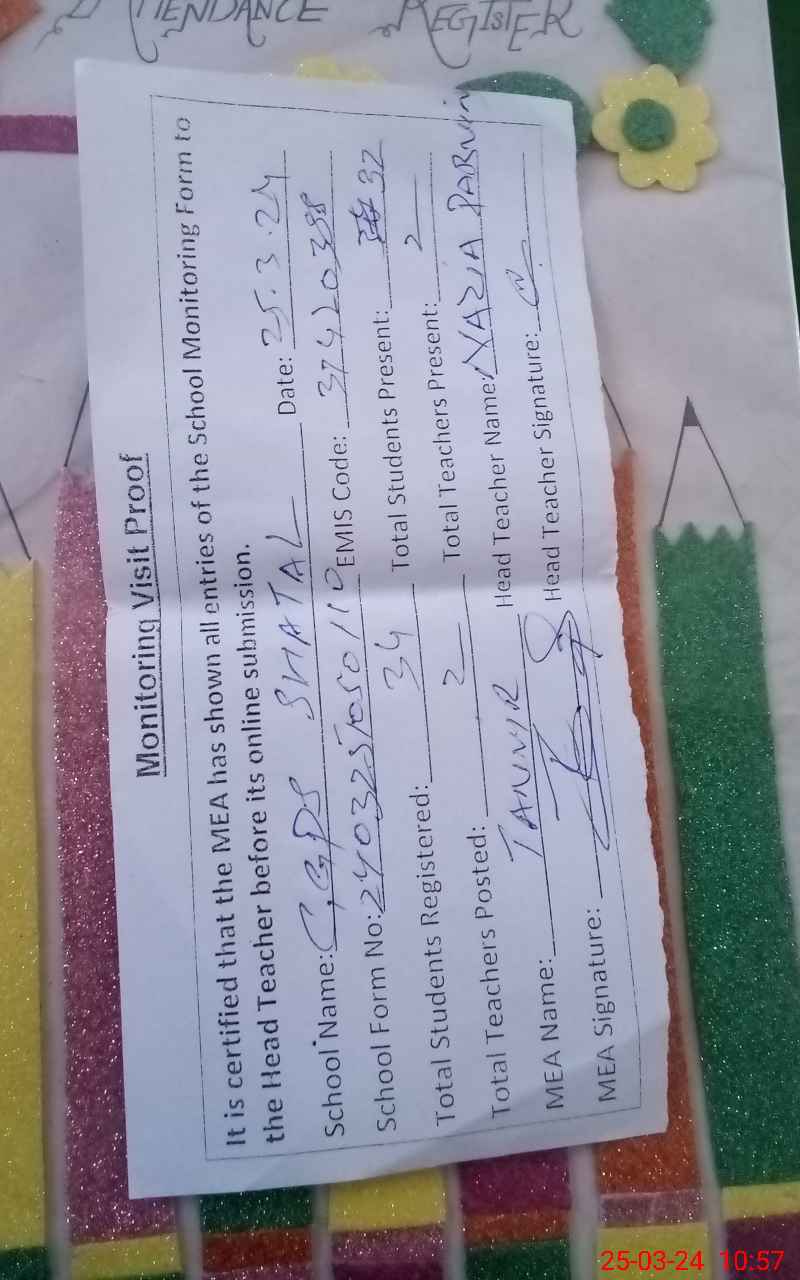 ATTENDANCE REGISTER
Monitoring Visit Proof
It is certified that the MEA has shown all entries of the School Monitoring Form to
the Head Teacher before its online submission.
School Name: GGPS SHATAL Date: 25.3.24
School Form No: 240325105011 EMIS Code: 37420398
Total Students Registered: 34 Total Students Present: 32
Total Teachers Posted: 2 Total Teachers Present: 2
MEA Name: TANVIR Head Teacher Name: NAZIA PARVIN
MEA Signature: Head Teacher Signature:
25-03-24 10:57